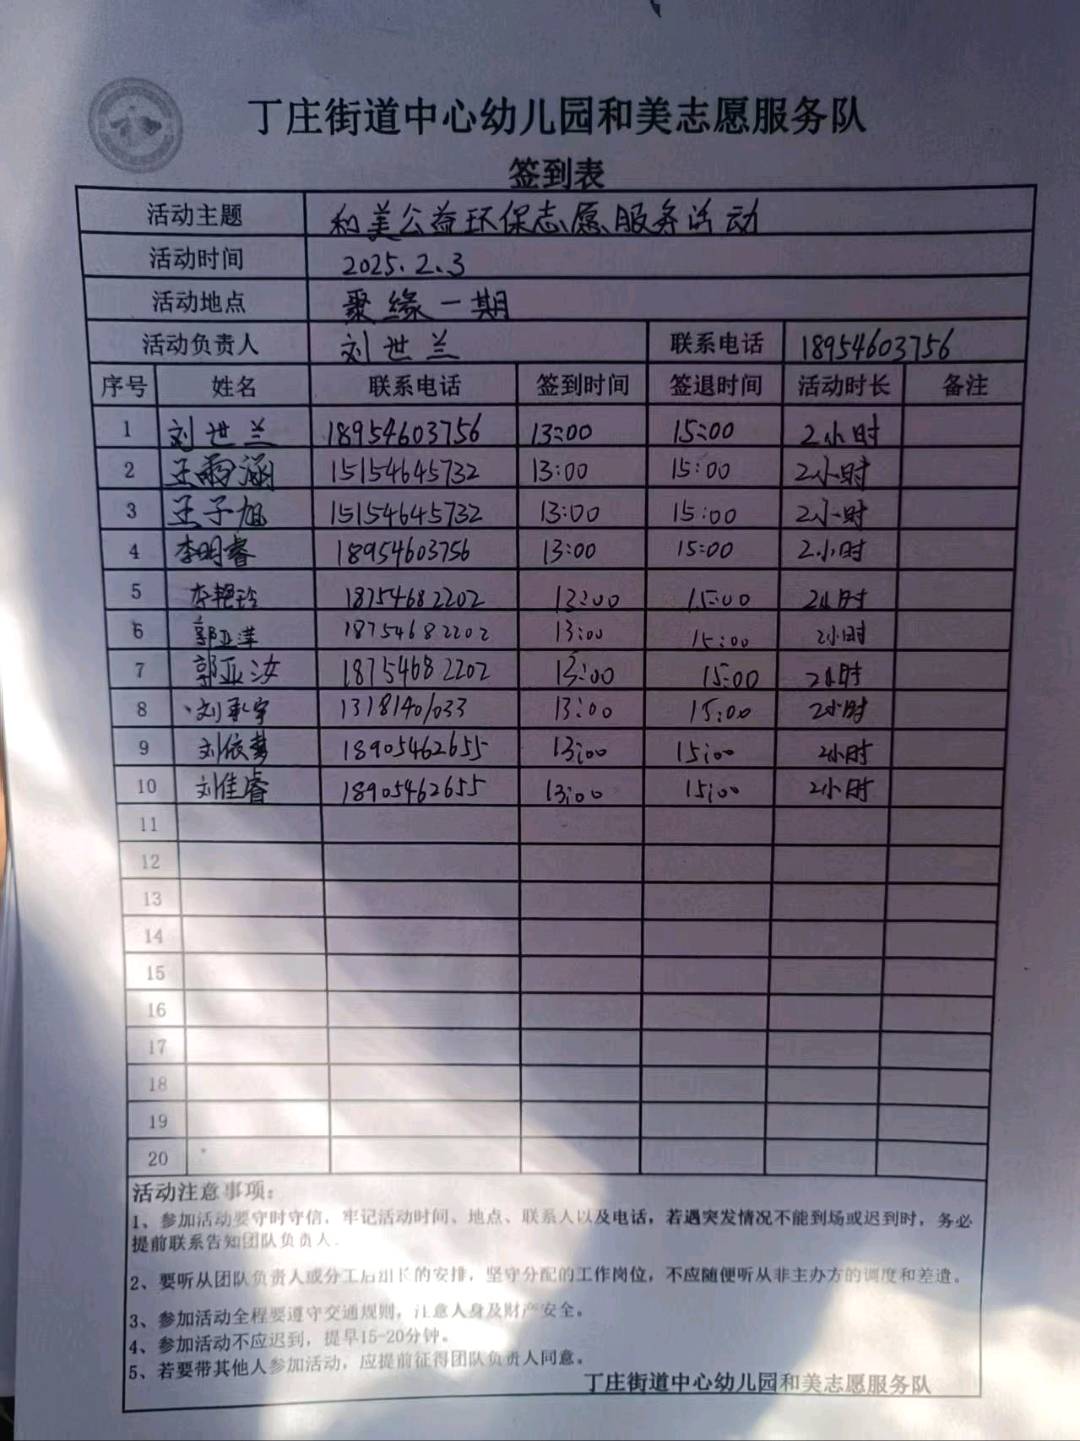 丁庄街道中心幼儿园和美志愿服务队
签到表
活动主题 和美公益环保志愿服务活动
活动时间 2025.2.3
活动地点 聚缘一期
活动负责人 刘世兰 联系电话 18954603756
序号 姓名 联系电话 签到时间 签退时间 活动时长 备注
1 刘世兰 18954603756 13:00 15:00 2小时
2 王雨涵 15154645732 13:00 15:00 2小时
3 王子旭 15154645732 13:00 15:00 2小时
4 李明睿 18954603756 13:00 15:00 2小时
5 李艳玲 18754682202 13:00 15:00 2小时
6 郭亚萍 18754682202 13:00 15:00 2小时
7 郭亚汝 18754682202 13:00 15:00 2小时
8 刘承宇 13181401033 13:00 15:00 2小时
9 刘依梦 18905462655 13:00 15:00 2小时
10 刘佳睿 18905462655 13:00 15:00 2小时
11
12
13
14
15
16
17
18
19
20
活动注意事项：
1、参加活动要守时守信，牢记活动时间、地点、联系人以及电话，若遇突发情况不能到场或迟到时，务必
提前联系告知团队负责人.
2、要听从团队负责人或分工后组长的安排，坚守分配的工作岗位，不应随便听从非主办方的调度和差遣。
3、参加活动全程要遵守交通规则，注意人身及财产安全。
4、参加活动不应迟到，提早15-20分钟。
5、若要带其他人参加活动，应提前征得团队负责人同意。
丁庄街道中心幼儿园和美志愿服务队